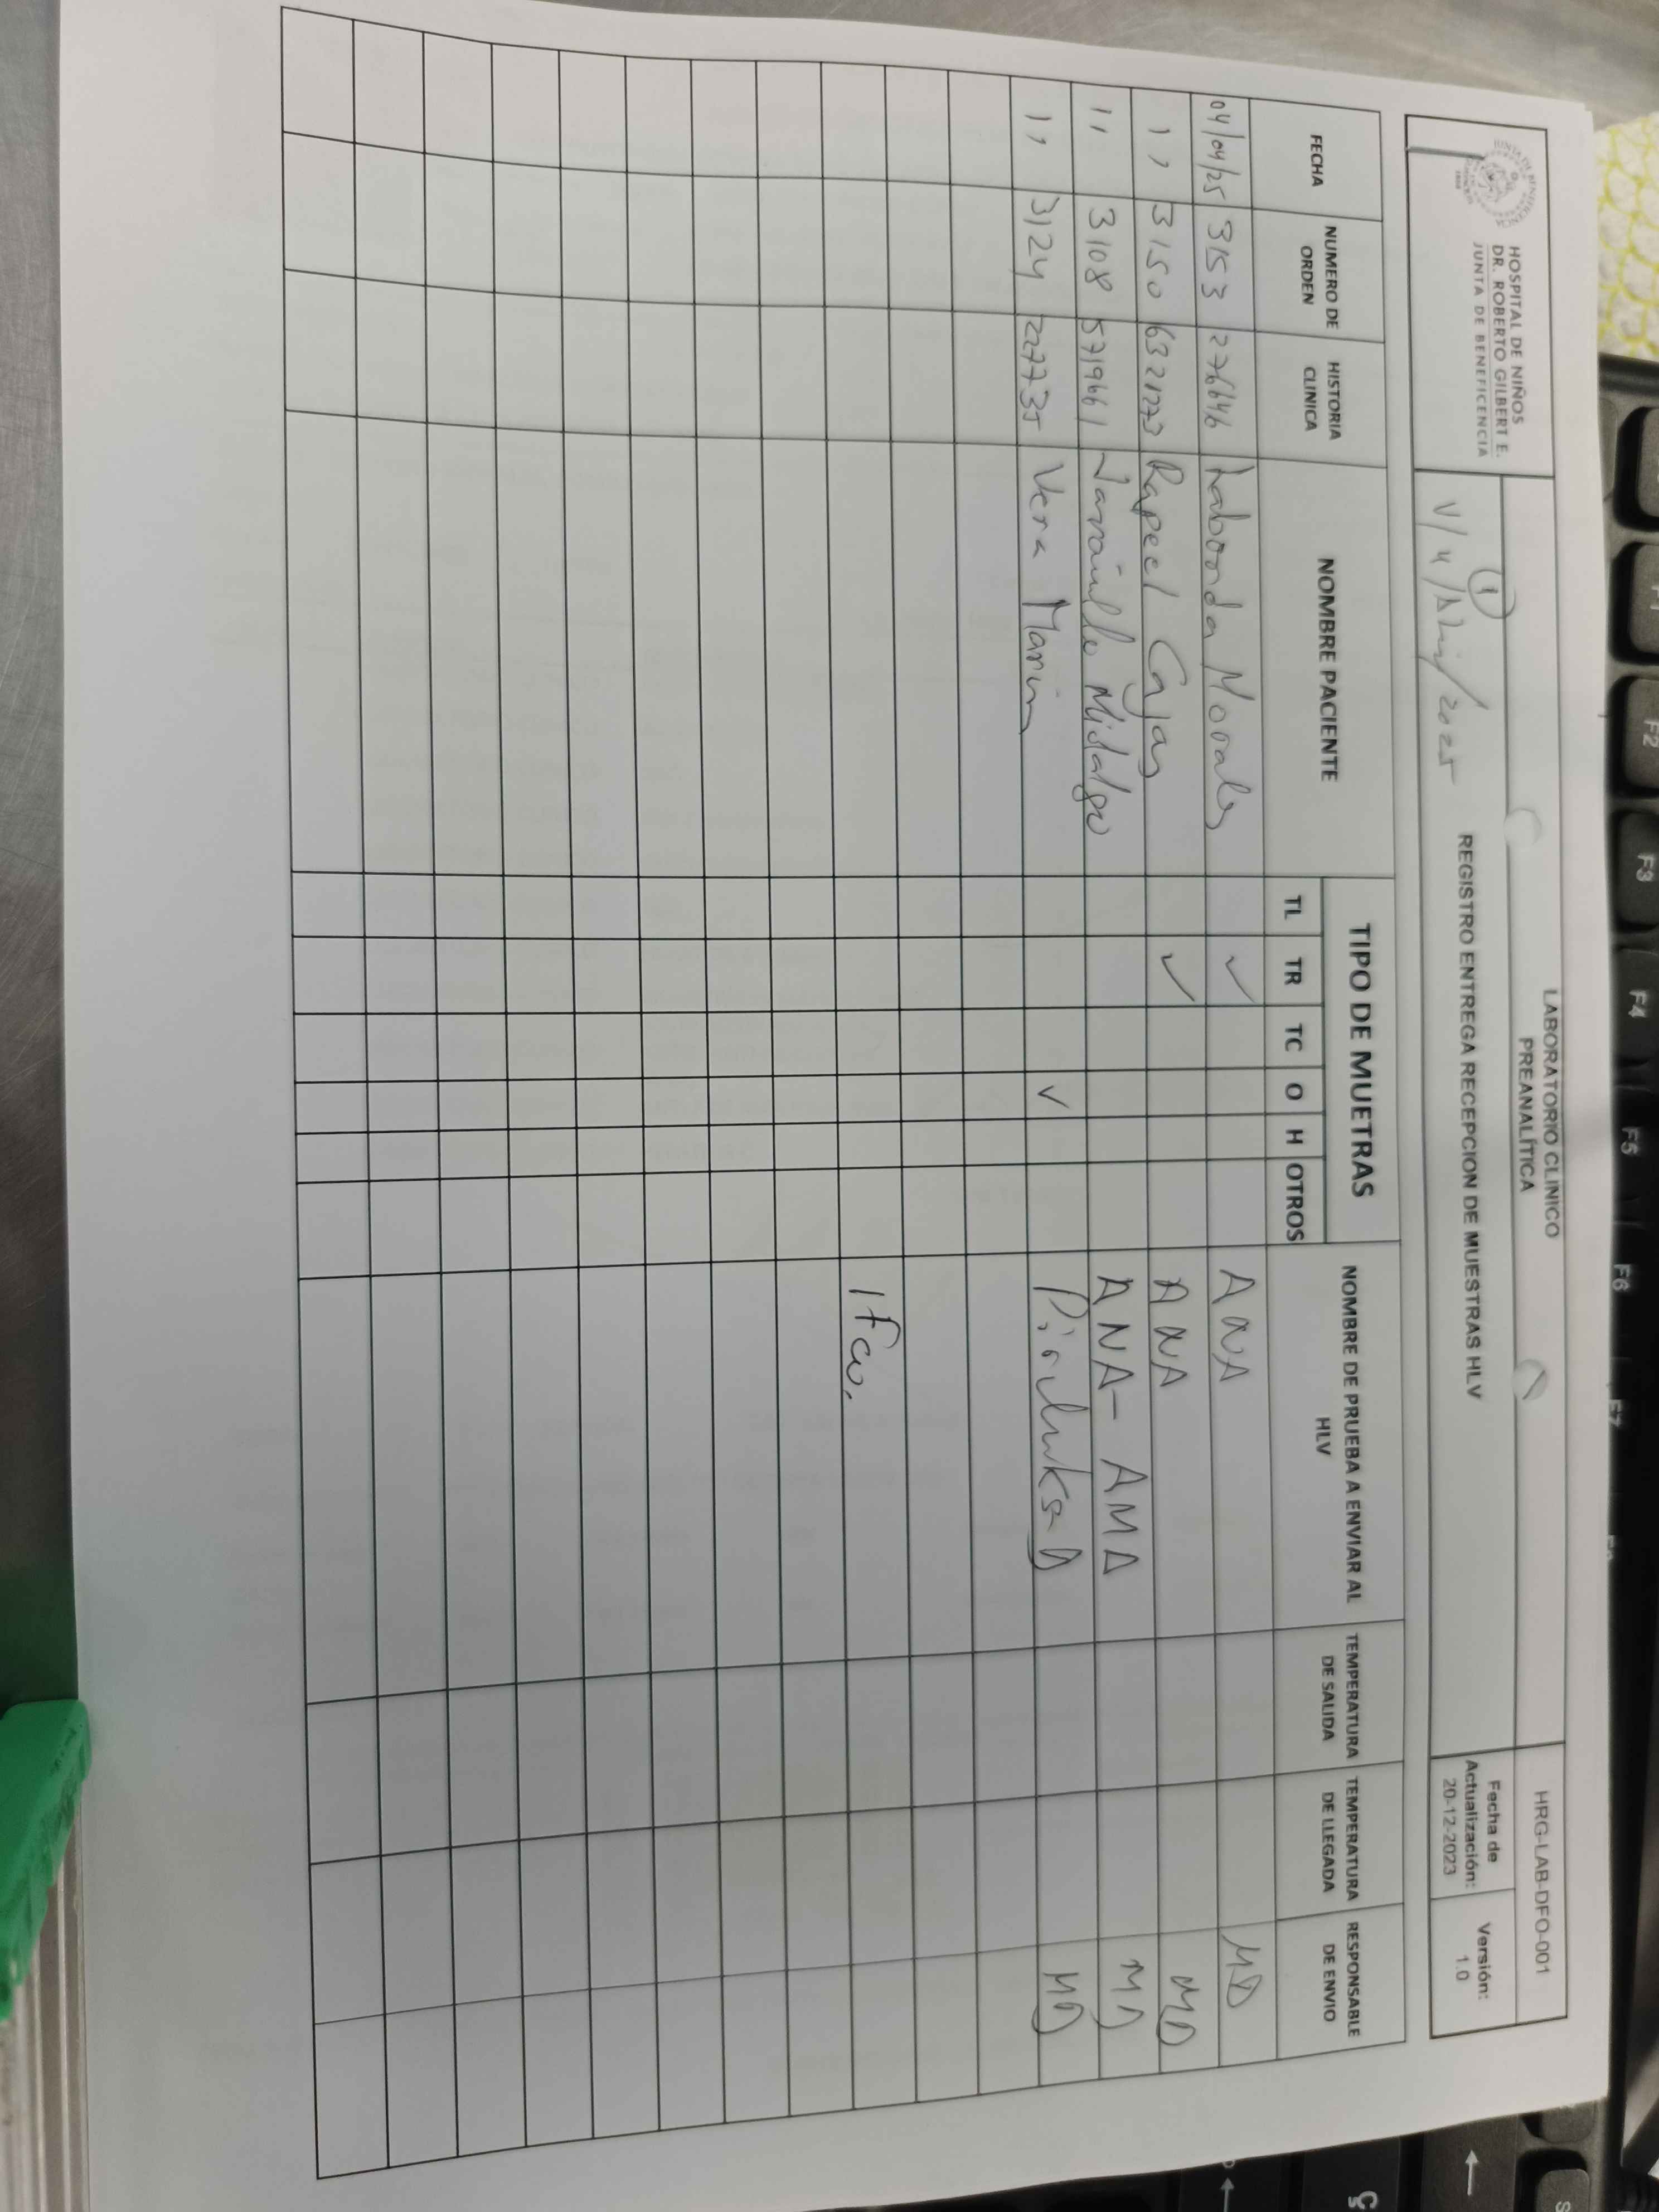 HOSPITAL DE NIÑOS
DR. ROBERTO GILBERT E.
JUNTA DE BENEFICENCIA
LABORATORIO CLINICO
PREANALÍTICA
HRG-LAB-DFO-001
1
V/4/Abril/2025
REGISTRO ENTREGA RECEPCION DE MUESTRAS HLV
Fecha de Actualización: 20-12-2023
Versión: 1.0
FECHA NUMERO DE ORDEN HISTORIA CLINICA NOMBRE PACIENTE TIPO DE MUETRAS NOMBRE DE PRUEBA A ENVIAR AL HLV TEMPERATURA DE SALIDA TEMPERATURA DE LLEGADA RESPONSABLE DE ENVIO
TL TR TC O H OTROS
04/04/25 3153 276646 Laborda Morales ✓ ANA MD
'' 3150 6321273 Cajas ✓ ANA MD
'' 3108 5719661 Jaramillo Hidalgo ANA- AMA MD
'' 3124 227735 Vera Marin ✓ MD